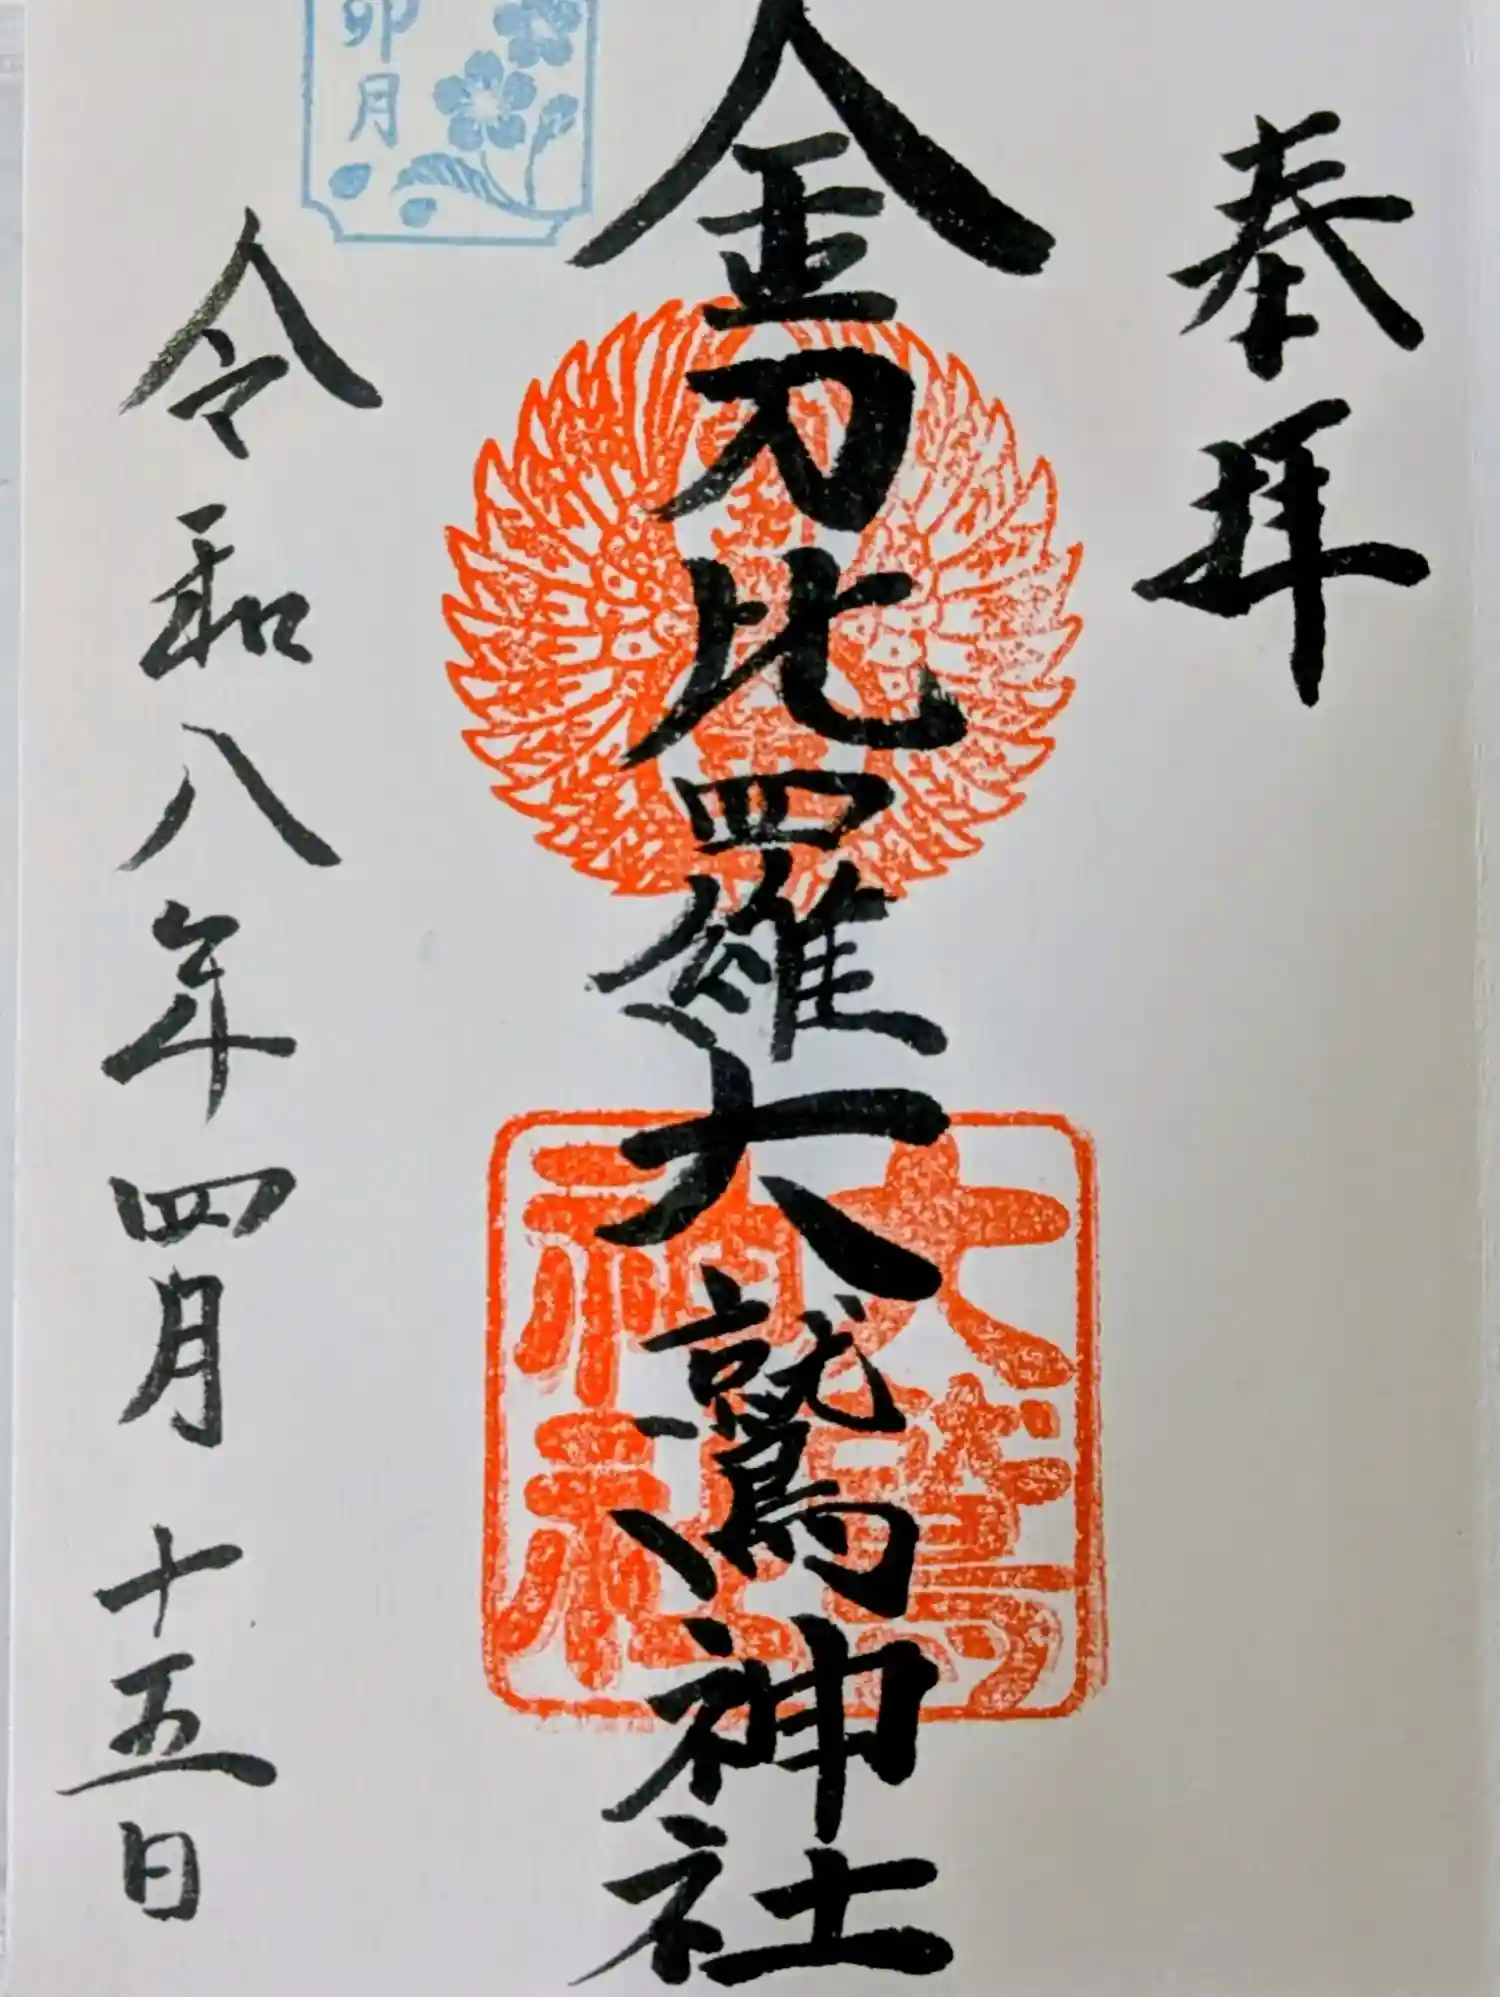 奉拝
金刀比羅大鷲神社
大鷲
神社
卯月
令和八年四月十五日